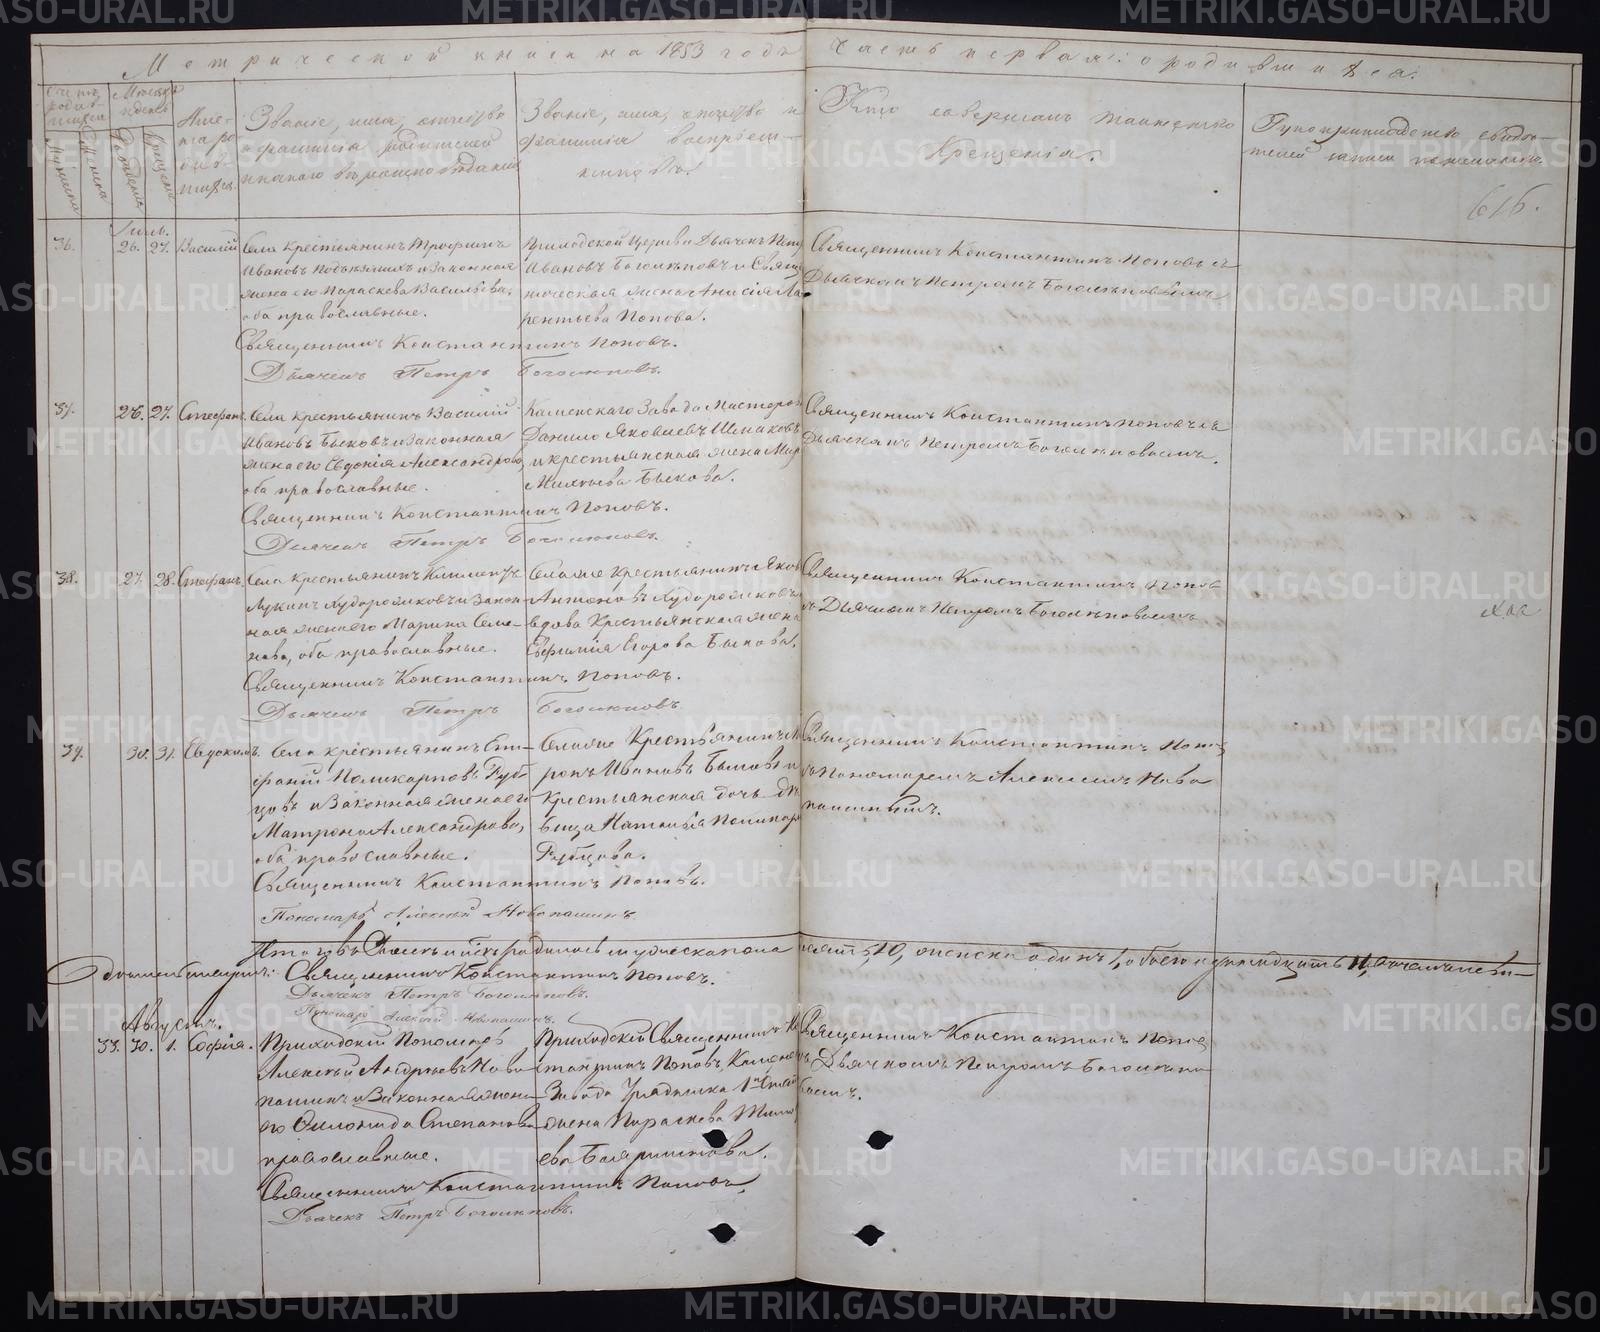 Метрической книги на 1853 годъ
Часть первая: о родившихся.
Счетъ родившихся
Мѣсяцъ и день
Мужеска
Женска
Рожденія
Крещенія
Имена родившихся.
Званіе, имя, отчество
и фамилія родителей
и какого вѣроисповѣданія
Званіе, имя, отчество и
фамилія воспріем-
никовъ.
Кто совершалъ таинство
Крещенія.
Рукоприкладство свидѣ-
телей записи по желанію.
616.
Іюль.
36.
26. 27.
Василій
Села крестьянинъ Трофимъ
Ивановъ и законная
жена его Параскева Васильева,
оба православные.
Приходской Церкви Дьячекъ Петръ
Ивановъ Боголѣповъ и Свяще
ническая жена Анисія Лав
рентьева Попова.
Священникъ Константинъ Поповъ съ
Дьячкомъ Петромъ Боголѣповымъ
Священникъ Константинъ Поповъ.
Дьячекъ Петръ Боголѣповъ.
37.
26. 27.
Стефанъ.
Села крестьянинъ Василій
Ивановъ Быковъ и законная
жена его Евдокія Александрова,
оба православные.
Каменскаго Завода Мастеровой
Данило Яковлевъ Шмаковъ
и крестьянская жена
Михѣева Быкова.
Священникъ Константинъ Поповъ съ
Дьячкомъ Петромъ Боголѣповымъ.
Священникъ Константинъ Поповъ.
Дьячекъ Петръ Боголѣповъ.
38.
27. 28.
Стефанъ.
Села крестьянинъ Климентъ
Лукинъ Худорожковъ и Закон
ная жена его Марина Семе
нова, оба православные.
Села же Крестьянинъ Яковъ
Антоновъ Худорожковъ и
вдова Крестьянская жена
Евфимія Егорова Быкова.
Священникъ Константинъ Поповъ
съ Дьячкомъ Петромъ Боголѣповымъ
Священникъ Константинъ Поповъ.
Дьячекъ Петръ Боголѣповъ
39.
30. 31.
Евдокимъ.
Села крестьянинъ Епи-
фаній Поликарповъ Руб
цовъ и Законная жена его
Матрона Александрова,
оба православные.
Села же Крестьянинъ
Ивановъ Быковъ и
Крестьянская дочь дѣ
вица Наталья Поликарп
Рубцова.
Священникъ Константинъ Попов
съ Пономаремъ Алексѣемъ Ново
пашинымъ.
Священникъ Константинъ Поповъ.
Пономарь Алексѣй Новопашинъ.
Итого въ Іюлѣ мѣсяцѣ родилось мужеска пола десять, 10, женска одинъ 1, обоего одинадцать 11,
Священникъ Константинъ Поповъ.
Дьячекъ Петръ Боголѣповъ.
Пономарь Алексѣй Новопашинъ.
Августъ.
33.
30. 1.
Софія.
Приходскій Пономарь
Алексѣй Андреевъ Ново
пашинъ и Законная жена
его Степанова
православные.
Приходскій Священникъ Кон
стантинъ Поповъ, Каменск
Завода Урядника 1й Статьи
жена Параскева

Священникъ Константинъ Попов
съ Дьячкомъ Петромъ Боголѣпо
вымъ.
Священникъ Константинъ Поповъ,
Дьячекъ Петръ Боголѣповъ.
METRIKI.GASO-URAL.RU